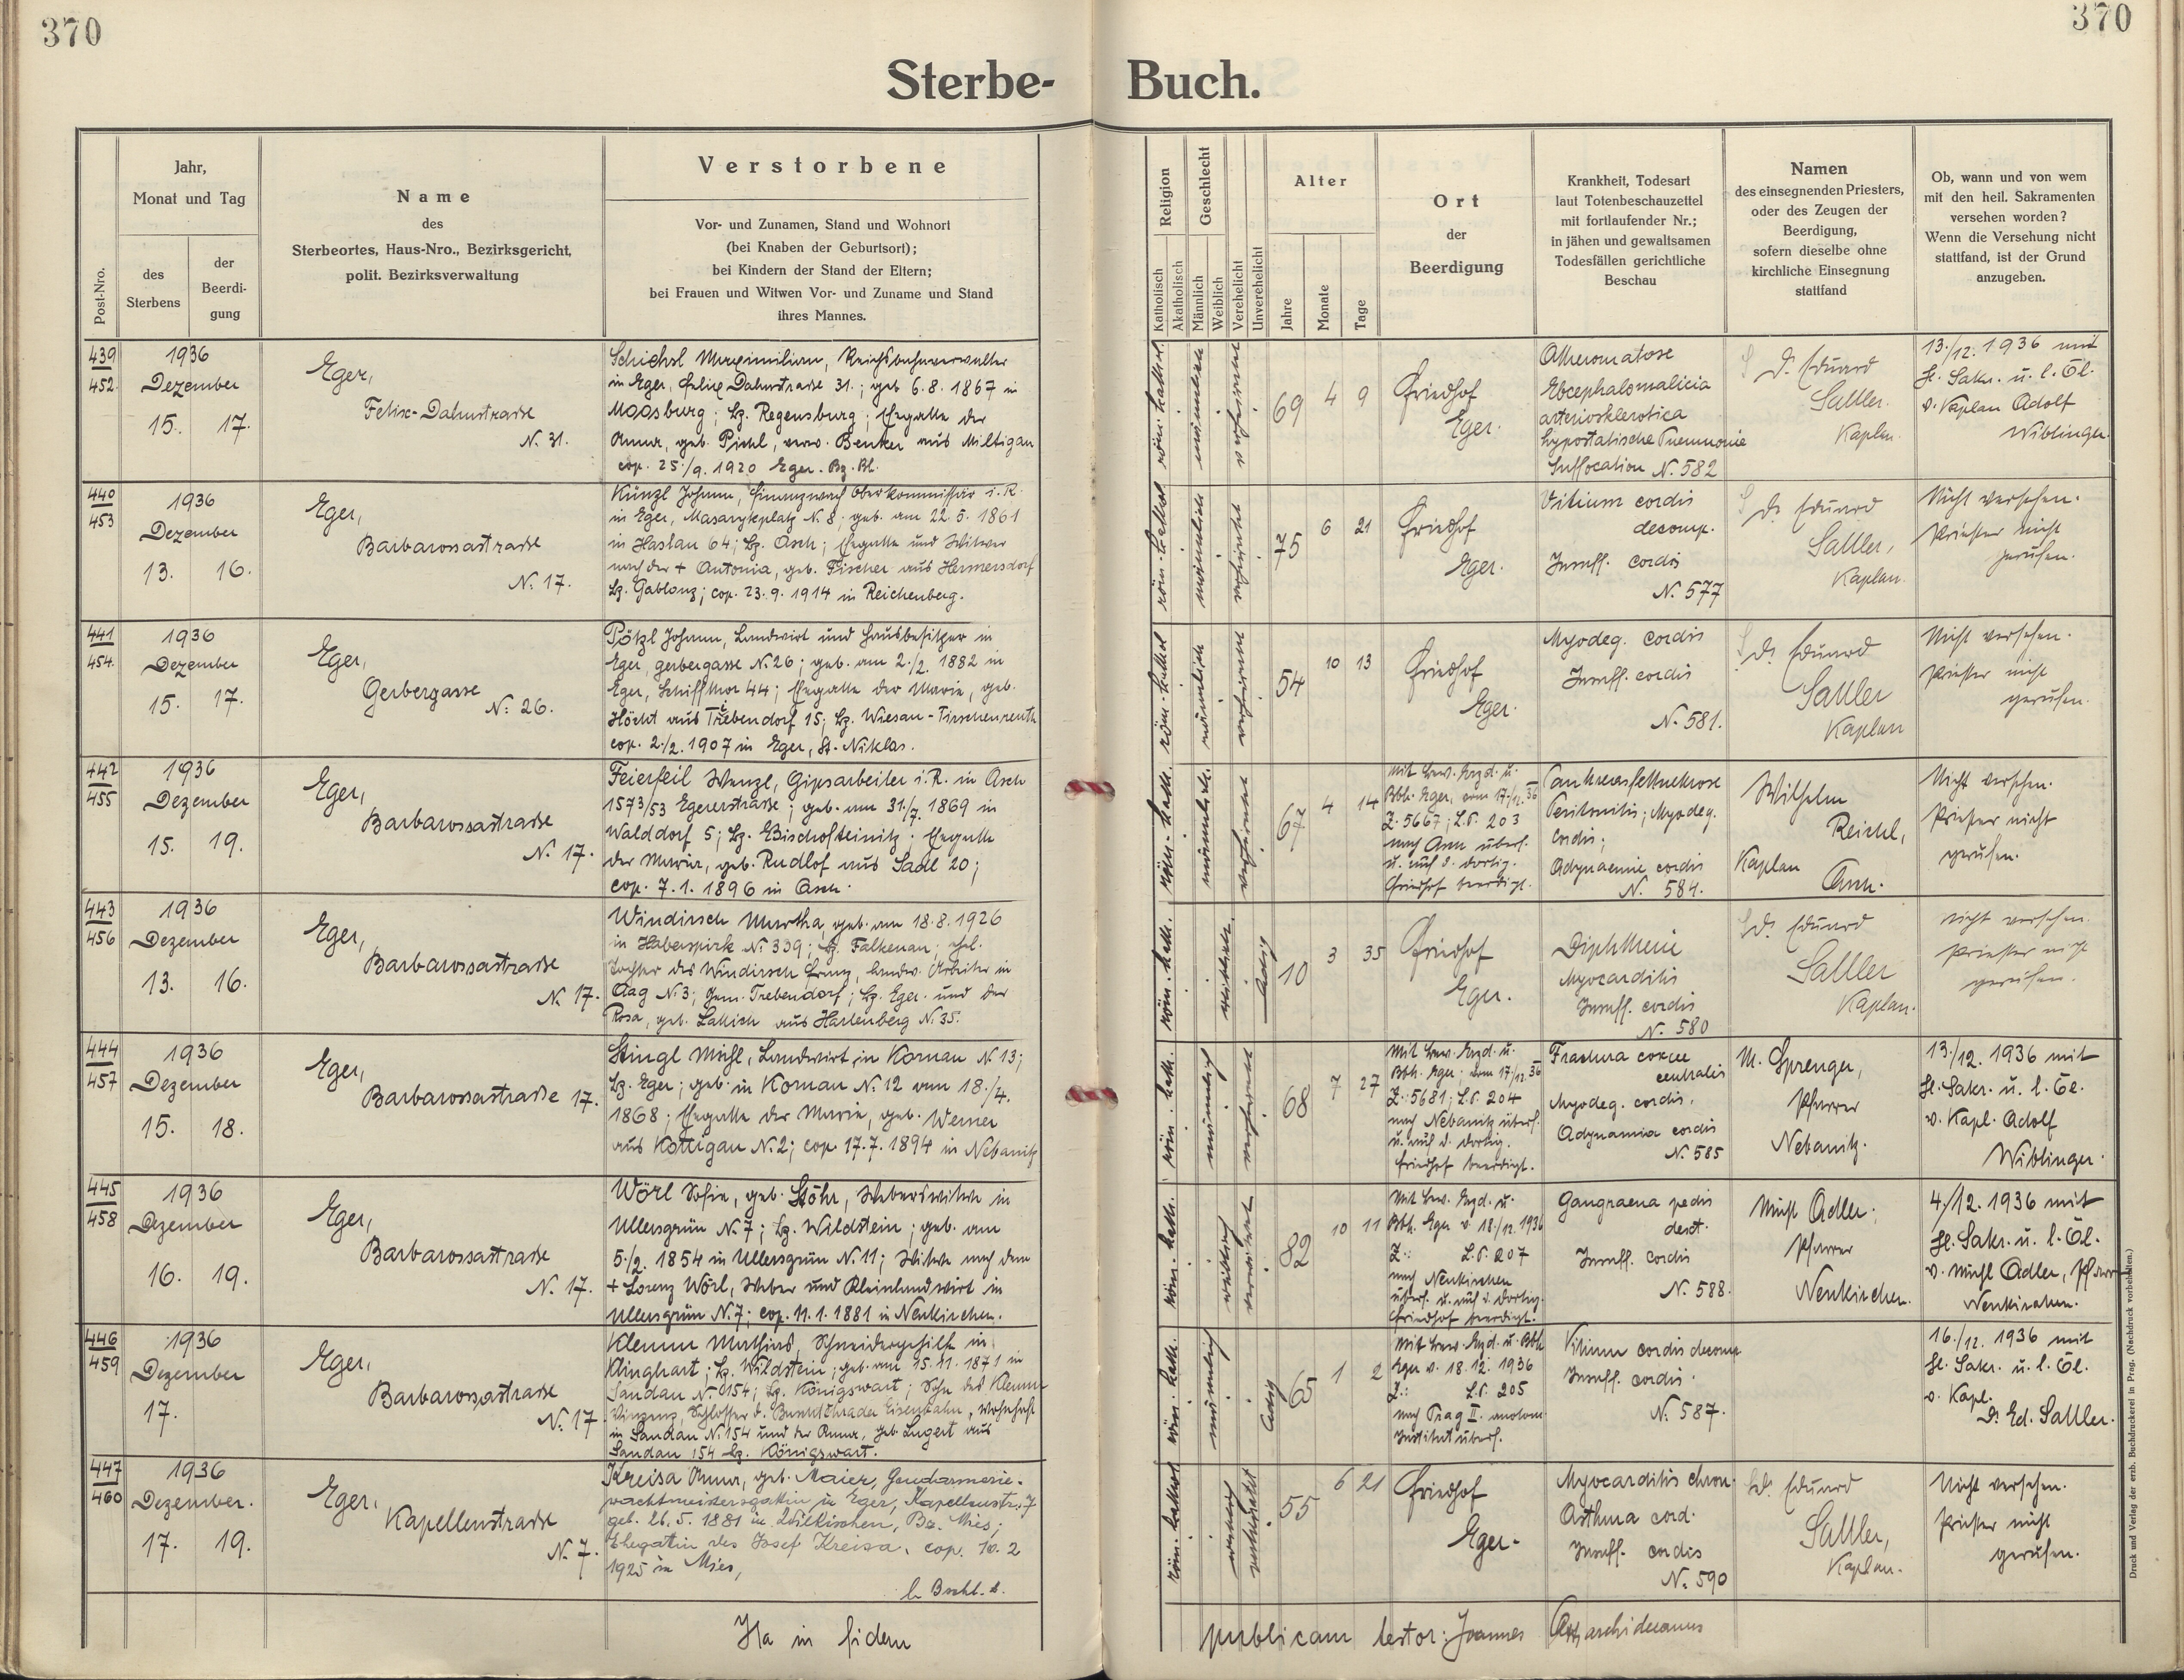 370
370
Sterbe-
Buch.
Post-Nro.
Jahr,
Monat und Tag
des
Sterbens
der
Beerdi-
gung
Name
des
Sterbeortes, Haus-Nro., Bezirksgericht,
polit. Bezirksverwaltung
Verstorbene
Vor- und Zunamen, Stand und Wohnort
(bei Knaben der Geburtsort);
bei Kindern der Stand der Eltern;
bei Frauen und Witwen Vor- und Zuname und Stand
ihres Mannes.
Religion
Katholisch
Akatholisch
Geschlecht
Männlich
Weiblich
Verehelicht
Unverehelicht
Alter
Jahre
Monate
Tage
Ort
der
Beerdigung
Krankheit, Todesart
laut Totenbeschauzettel
mit fortlaufender Nr.;
in jähen und gewaltsamen
Todesfällen gerichtliche
Beschau
Namen
des einsegnenden Priesters,
oder des Zeugen der
Beerdigung,
sofern dieselbe ohne
kirchliche Einsegnung
stattfand
Ob, wann und von wem
mit den heil. Sakramenten
versehen worden?
Wenn die Versehung nicht
stattfand, ist der Grund
anzugeben.
439
452
1936
Dezember
15. 17.
Eger,
Felix-Dahnstrasse
N. 31.
Schichsl Maximilian, Reichsbahnverwalter
in Eger, Felix Dahnstrasse 31.; geb 6.8.1867 in
Moosburg; Bz. Regensburg; Ehegatte der
Anna, geb. Pichl, verw. Benker aus Miltigau
cop. 25./9. 1920 Eger. Bz. Bl.
röm. kathol.
männlich
verheiratet
69 4 9
Friedhof
Eger.
Atheromatose
Encephalomalicia
arteriosklerotica
hypostatische Pneumonie
Suffocation N. 582
Dr. Eduard
Sattler.
Kaplan.
13./12. 1936 mit
hl. Sakr. u. l. Öl.
v. Kaplan Adolf
Wiblinger.
440
453
1936
Dezember
13. 16.
Eger,
Barbarossastrasse
N. 17.
Künzl Johann, Finanzwach Oberkommissär i. R.
in Eger, Masarykplatz N. 8; geb. am 22.5. 1861
in Haslau 64; Bz. Asch; Ehegatte und Witwer
nach der + Antonia, geb. Fischer aus Hermersdorf
Bz. Gablonz; cop. 23.9.1914 in Reichenberg.
röm. kathol
männlich
verheiratet
75 6 21
Friedhof
Eger.
Vitium cordis
decomp.
Insuff. cordis
N. 577
Dr. Eduard
Sattler,
Kaplan.
Nicht versehen.
Priester nicht
gerufen.
441
454.
1936
Dezember
15. 17.
Eger,
Gerbergasse
N. 26.
Pötzl Johann, Landwirt und Hausbesitzer in
Eger, Gerbergasse N. 26; geb. am 2./2. 1882 in
Eger, Schiffthor 44; Ehegatte der Marie, geb.
Höcht aus Trebendorf 15; Bz. Wiesau-Tirschenreuth
cop. 2./2. 1907 in Eger, St. Niklas.
röm. kathol
männlich
verheiratet
54 10 13
Friedhof
Eger.
Myodeg. cordis
Insuff. cordis
N. 581.
Dr. Eduard
Sattler
Kaplan
Nicht versehen.
Priester nicht
gerufen.
442
455
1936
Dezember
15. 19.
Eger,
Barbarossastrasse
N. 17.
Feierfeil Wenzl, Gipsarbeiter i. R. in Asch
1573/53 Egererstrasse; geb. am 31./7. 1869 in
Walddorf 5; Bz. Bischofteinitz; Ehegatte
der Maria, geb. Rudlof aus Sadl 20;
cop. 7.1. 1896 in Asch.
röm. kath.
männlich.
verheiratet
67 4 14
Mit bew. d. u.
Bbh. Eger, vom 17./12. 36
Z. 5667; L.P. 203
nach Asch überf.
u. auf d. dortig.
Friedhof beerdigt.
Pankreasfettnekrose
Peritonitis; Myodeg.
cordis;
Adynamie cordis
N. 584.
Wilhelm
Reichl,
Kaplan
Asch.
Nicht versehen.
Priester nicht
gerufen.
443
456
1936
Dezember
13. 16.
Eger,
Barbarossastrasse
N. 17.
Windirsch Martha, geb. am 18.8.1926
in Haberspirk N. 339; Bz. Falkenau; ehel.
Tochter des Windirsch Franz, landw. Arbeiter in
Aag N. 3; Gem. Trebendorf; Bz. Eger und der
Rosa, geb. Lakich aus Hartenberg N. 35.
röm. kath.
weiblich.
ledig
10 3 35
Friedhof
Eger.
Diphtherie
Myocarditis
Insuff. cordis
N. 580
Dr. Eduard
Sattler
Kaplan.
Nicht versehen.
Priester nicht
gerufen.
444
457
1936
Dezember
15. 18.
Eger,
Barbarossastrasse 17.
Stingl Michl, Landwirt in Kornau N 13;
Bz. Eger; geb. in Kornau N. 12 am 18./4.
1868; Ehegatte der Maria, geb. Werner
aus Kottigau N. 2; cop. 17.7.1894 in Nebanitz
röm. kath.
männlich
verheiratet
68 7 27
Mit bew. d. u.
Bbh. Eger vom 17./12. 36
Z.: 5681; L.P. 204
nach Nebanitz überf.
u. auf d. dortig.
Friedhof beerdigt.
Fractura coxae
centralis
Myodeg. cordis.
Adynamia cordis
N. 585
M. Sprenger,
Pfarrer
Nebanitz.
13./12. 1936 mit
hl. Sakr. u. l. Öl.
v. Kapl. Adolf
Wiblinger.
445
458
1936
Dezember
16. 19.
Eger,
Barbarossastrasse
N. 17.
Wörl Sofie, geb. Stöhr, Weberswitwe in
Ullersgrün N. 7; Bz. Wildstein; geb. am
5./2. 1854 in Ullersgrün N. 11; Witwe nach dem
+ Lorenz Wörl, Weber und Kleinlandwirt in
Ullersgrün N. 7; cop. 11.1.1881 in Neukirchen.
röm. kath.
weiblich
verwitwet
82 10 11
Mit bew. d. u.
Bbh. Eger v. 18./12. 1936
Z.: L.P. 207
nach Neukirchen
überf. u. auf d. dortig.
Friedhof beerdigt.
Gangraena pedis
dext.
Insuff. cordis
N. 588.
Michl Adler,
Pfarrer
Neukirchen.
4./12. 1936 mit
hl. Sakr. u. l. Öl.
v. Michl Adler, Pfarrer
Neukirchen.
446
459
1936
Dezember
17.
Eger,
Barbarossastrasse
N. 17
Klemm Mathias, Schneidergehilfe in
Klinghart; Bz. Wildstein; geb. am 15.11.1871 in
Sandau N. 154; Bz. Königswart; Sohn des Klemm
Vinzenz, Schlosser d. Buschtěhrader Eisenbahn, wohnhaft
in Sandau N. 154 und der Anna, geb. Lugert aus
Sandau 154 Bz. Königswart.
röm. kath.
männlich
ledig
65 1 2
Mit bew. d. u. Bbh
Eger v. 18.12.1936
Z.: L.P. 205
nach Prag II. anatom.
Institut überf.
Vitium cordis decomp
Insuff. cordis.
N. 587.
16./12. 1936 mit
hl. Sakr. u. l. Öl.
v. Kapl.
Dr. Ed. Sattler.
447
460
1936
Dezember.
17. 19.
Eger,
Kapellenstrasse
N. 7.
Kreisa Anna, geb. Maier, Gendarmerie-
wachtmeistersgattin in Eger, Kapellenstr. 7
geb. 26.5.1881 in Wilkischen, Bz. Mies;
Ehegattin des Josef Kreisa, cop. 10.2
1925 in Mies,
röm. kathol
weiblich
verheiratet
55 6 21
Friedhof
Eger.
Myocarditis chron.
Asthma cord.
Insuff. cordis
N. 590
Dr. Eduard
Sattler,
Kaplan.
Nicht versehen.
Priester nicht
gerufen.
Ita in fidem
publicam testor: Joannes archidecanus
Druck und Verlag der erzb. Buchdruckerei in Prag. (Nachdruck vorbehalten.)